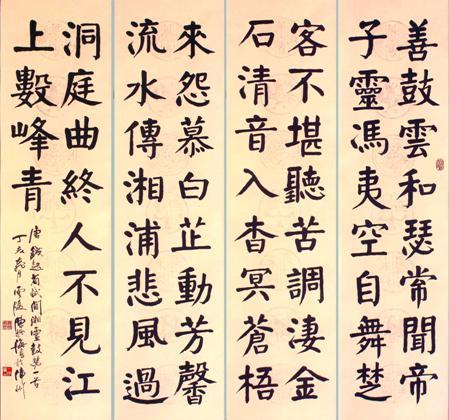 善鼓雲和瑟常聞帝
子靈馮夷空自舞楚
客不堪聽苦調淒金
石清音入杳冥蒼梧
來怨慕白芷動芳馨
流水傳湘浦悲風過
洞庭曲終人不見江
上數峰青
唐錢起省試湘靈鼓瑟一首
丁亥